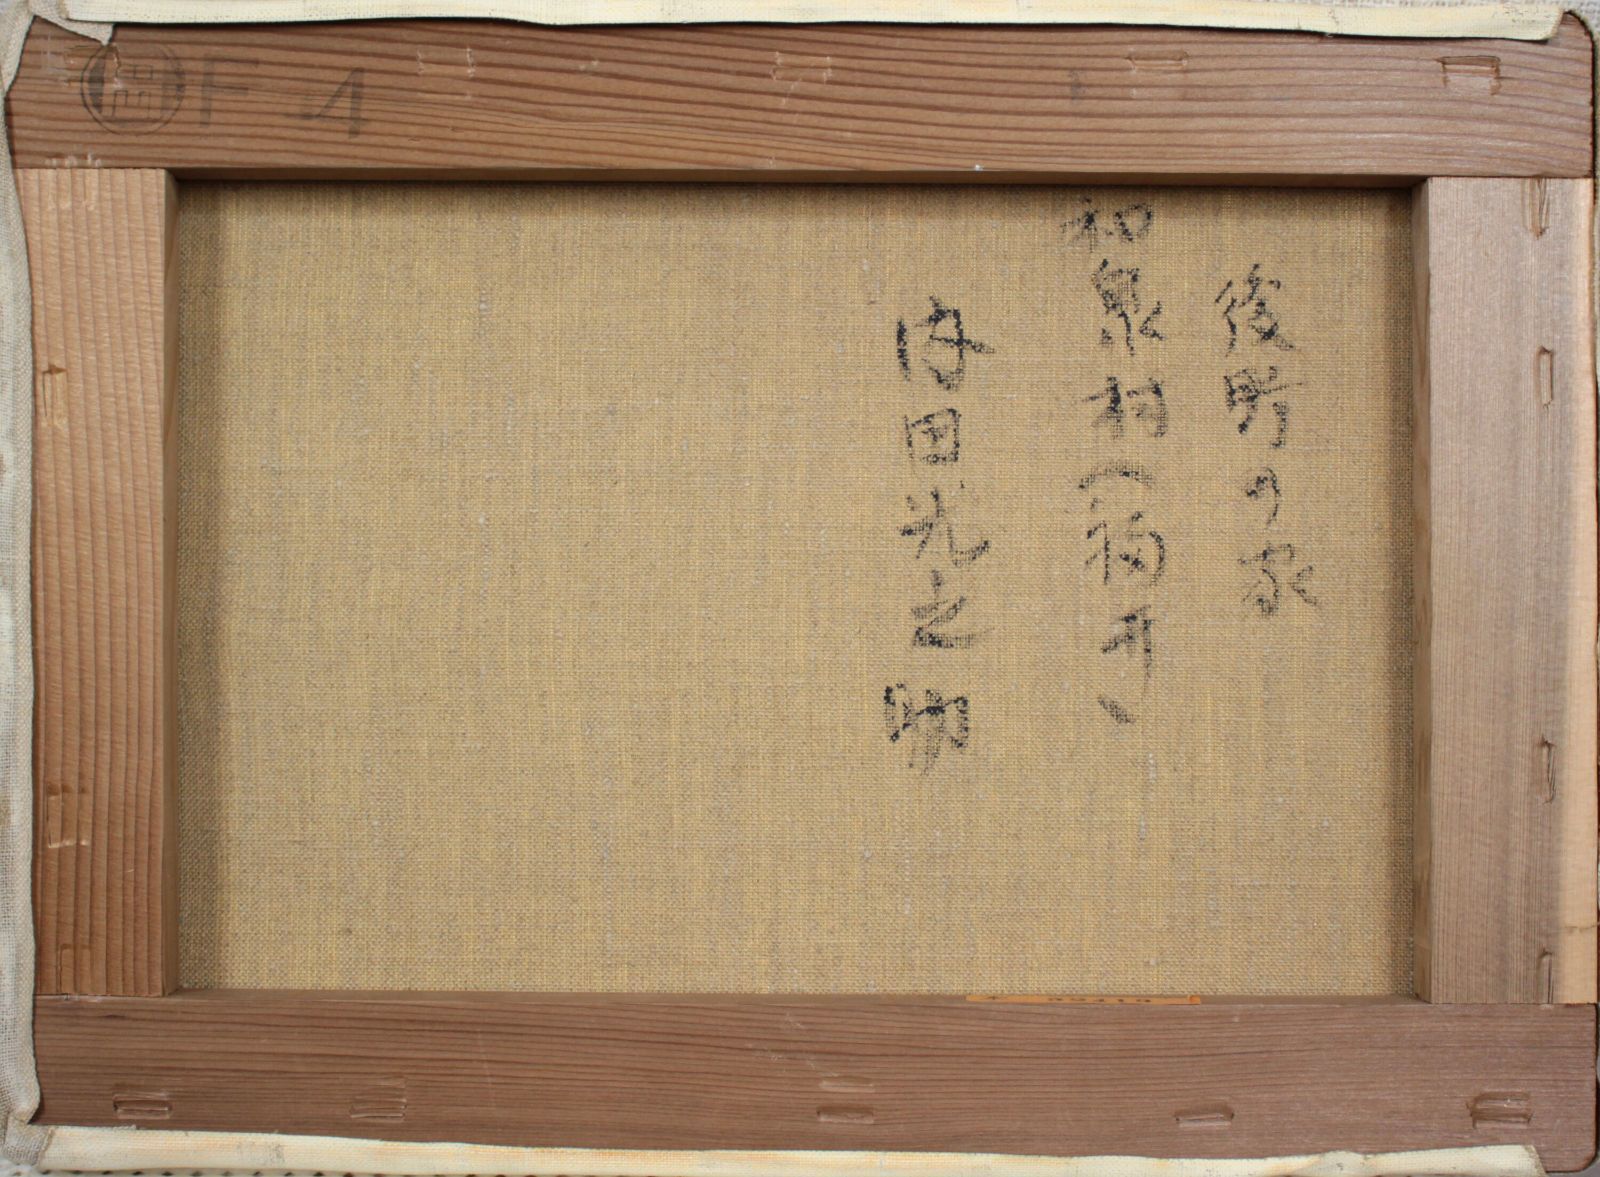 後野の家
和泉村(福井)
内田光之助
F4